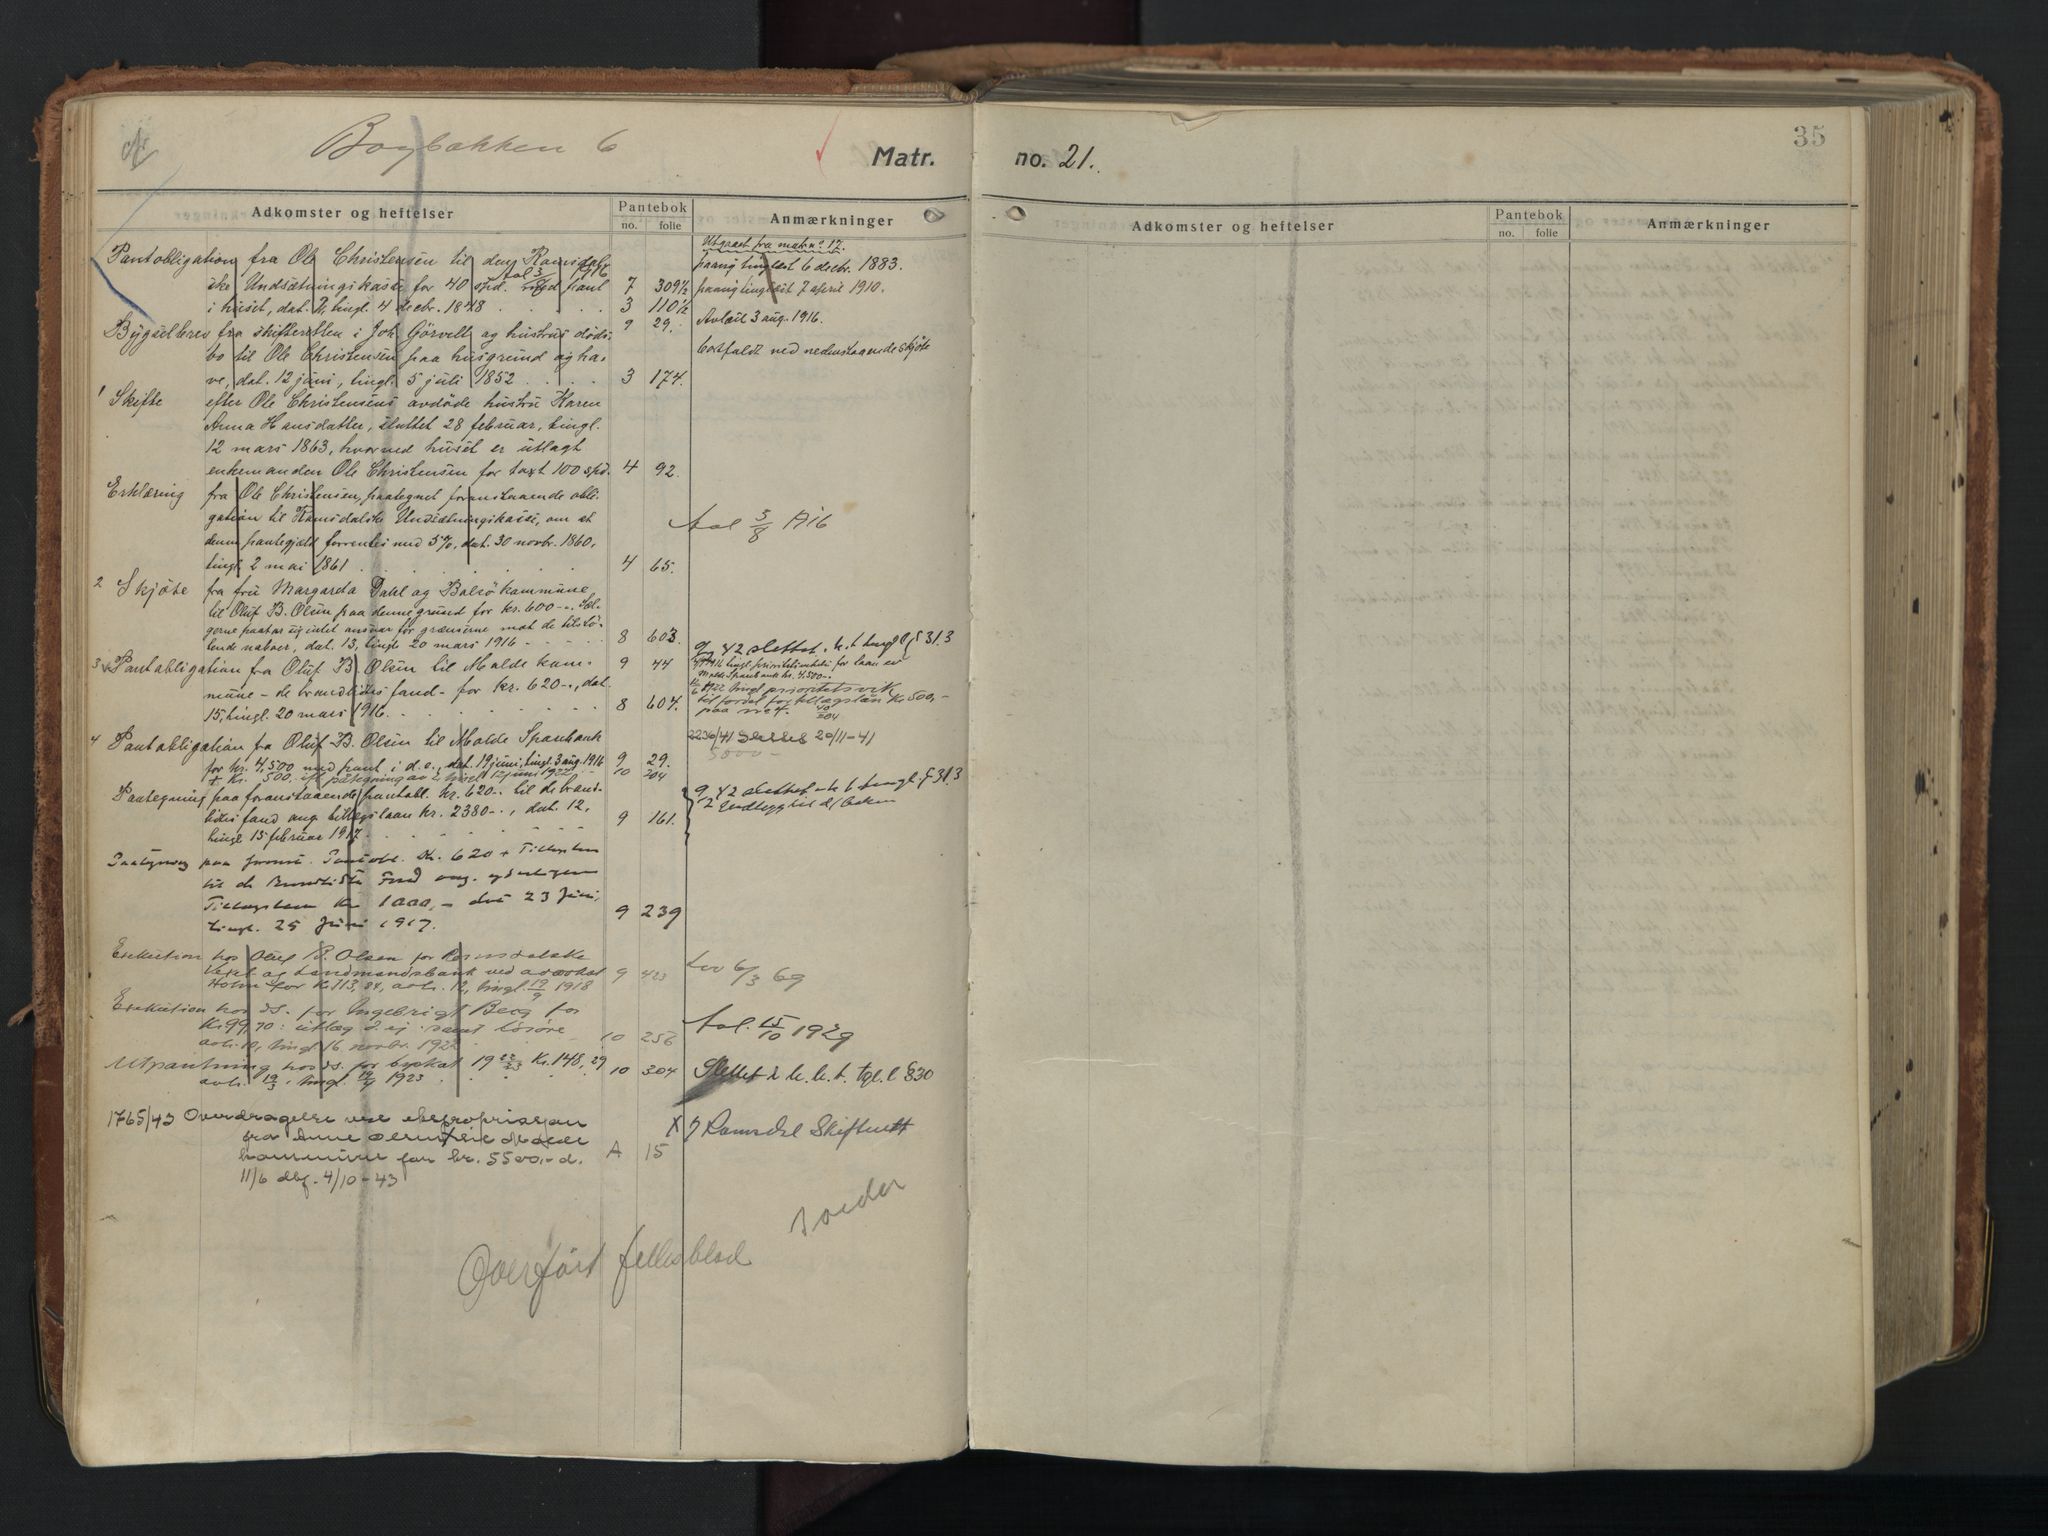 Bogbakken 6
Matr. no. 21.
35
Adkomster og heftelser
Pantebok
no. folie
Anmærkninger
Adkomster og heftelser
Pantebok
no. folie
Anmærkninger
Utgaaet fra matr.no 17.
Pantobligation fra Ole Christensen til den Romsdal-
paany tinglæst 6 decbr. 1883.
Avl 3/8 1916
ske Undsætningskasse for 40 spd. med pant 7 309½ paany tinglæst 7 april 1910.
i huset, dat. 2, tingl. 4 decbr. 1848 3 110½
9 29. Avlæst 3 aug. 1916.
Bygselbrev fra skifteretten i Joh. Görvell og hustrus döds-
bo til Ole Christensen paa husgrund og ha-
bortfaldt ved nedenstaaende skjöte
ve, dat. 12 juni, tingl. 5 juli 1852 3 174.
1 Skifte efter Ole Christensens avdöde hustru Karen
Anna Hansdatter, sluttet 28 februar, tingl.
12 mars 1863, hvorved huset er utlagt
enkemanden Ole Christensen for taxt 100 spd. 4 92.
Erklæring fra Ole Christensen, paategnet foranstaaende obli-
gation til Romsdalske Undsætningskasse, om at
Avl 3/8 1916
denne pantegjæld forrentes med 5%, dat. 30 novbr. 1860,
tingl. 2 mai 1861 4 65.
2 Skjöte fra fru Margarda Dahl og Bolsö kommune
til Oluf B. Olsen paa denne grund for kr. 600-. Sæl-
gerne paatar sig intet ansvar for grænserne mot de tilstö-
tende naboer, dat. 13, tingl. 20 mars 1916 8 603
9/2 42 slettet. h.t. tingl. l. § 31.3
3 Pantobligation fra Oluf B. Olsen til Molde kom- 9 44
tingl. prioritetsvikelse for laan til
Molde Sparebank kr. 4,500-.
mune - de brandlidtes fond - for kr. 620-, dat.
12/6 1922 tingl. prioritetsvik.
til fordel for tillægslån Kr. 500,-
15, tingl. 20 mars 1916. 8 604. paa no 4. 10/204
4 Pantobligation fra Oluf B. Olsen til Molde Sparebank
2236/41 Slettes 20/11-41
for kr. 4,500 med pant i d.e., dat. 19 juni, tingl. 3 aug. 1916 9 29. 5000-
+ Kr. 500, ifl. påtegning av 2, tingl. 12 juni 1922 10 204
Paategning paa foranstaaende pantobl. kr. 620-. til de brand-
9/2 42 slettet h.t. tingl. l. § 31.3
lidtes fond ang. tillægslaan kr. 2380-., dat. 12,
tingl. 15 februar 1917. 9 161.
Paategning paa foranst. Pantobl. Kr. 620 + Tillægslaan
til de Brandlidtes Fond ang. yderligere
Tillægslaan Kr 1000,- dat 23 Juni,
tingl. 25 Juni 1917. 9 239
Exekution hos Oluf B. Olsen for Romsdalske
Vexel og Landmandsbank ved advokat 9 423
Holm for Kr. 713,84, avh. 12, tingl. 19/9 1918
6/3 69
Exekution hos ds. for Ingebrigt Berg for
Kr. 99,70: utlæg i ej. samt lösöre
avh. 10, tingl. 16 novbr. 1922 10 256
Avl. 15/10 1929
Utpantning hos ds. for byskat 1922/23 Kr. 148,29
avh. 19/3, tingl. 19/4 1923 10 304
Slettet i h.h.t. tgl.l § 30
1765/43 Overdragelse ved ekspropriasjon
fra Anne til Molde
kommune for kr. 5500,- d. A 15
11/6 dbf. 4/10-43
X) Romsdal Skifterett
Overført fellesblad